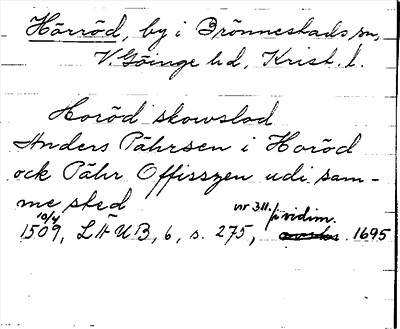 Hörröd, by i Brönnestads sn,
V. Göinge hd, Krist. l.
Horöd skowslod
Anders Påhrsen i Horöd
ock Påhr Offisszen udi sam-
me sted
10/4 1509, LÄUB, 6, s. 275, nr 311. p vidim. 1695